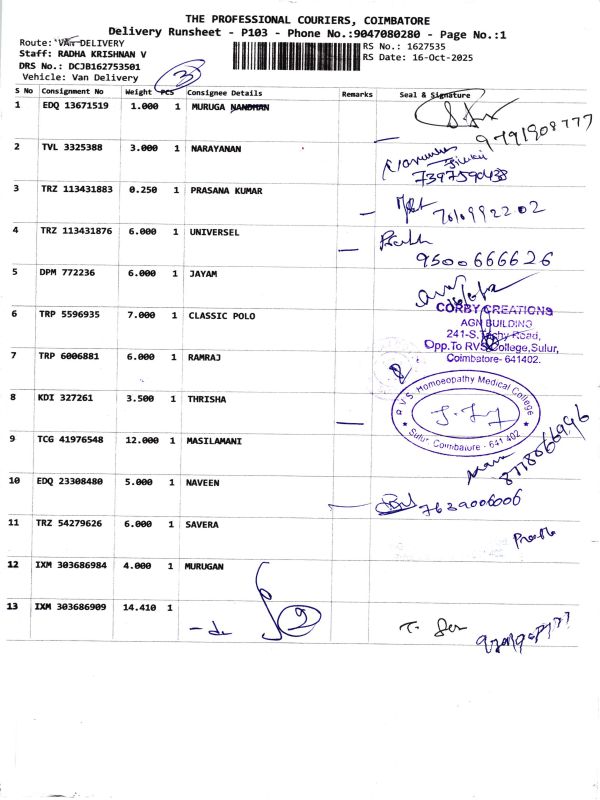 THE PROFESSIONAL COURIERS, COIMBATORE
Delivery Runsheet - P103 - Phone No.:9047080280 - Page No.:1
Route: VAN DELIVERY
RS No.: 1627535
Staff: RADHA KRISHNAN V
RS Date: 16-Oct-2025
DRS No.: DCJB162753501
Vehicle: Van Delivery
3
S No Consignment No Weight PCS Consignee Details Remarks Seal & Signature
1 EDQ 13671519 1.000 1 MURUGA NANDHAN
9791908777
2 TVL 3325388 3.000 1 NARAYANAN
7397590438
3 TRZ 113431883 0.250 1 PRASANA KUMAR
7010992202
4 TRZ 113431876 6.000 1 UNIVERSEL
9500666626
5 DPM 772236 6.000 1 JAYAM
6 TRP 5596935 7.000 1 CLASSIC POLO
CORBY CREATIONS
AGN BUILDING
241-S, Trichy Road,
Opp.To RVS College,Sulur,
Coimbatore- 641402.
7 TRP 6006881 6.000 1 RAMRAJ
8
8 KDI 327261 3.500 1 THRISHA
R.V.S. Homoeopathy Medical College
Sulur, Coimbatore - 641 402
9 TCG 41976548 12.000 1 MASILAMANI
10 EDQ 23308480 5.000 1 NAVEEN
7639006006
11 TRZ 54279626 6.000 1 SAVERA
12 IXM 303686984 4.000 1 MURUGAN
13 IXM 303686909 14.410 1
9